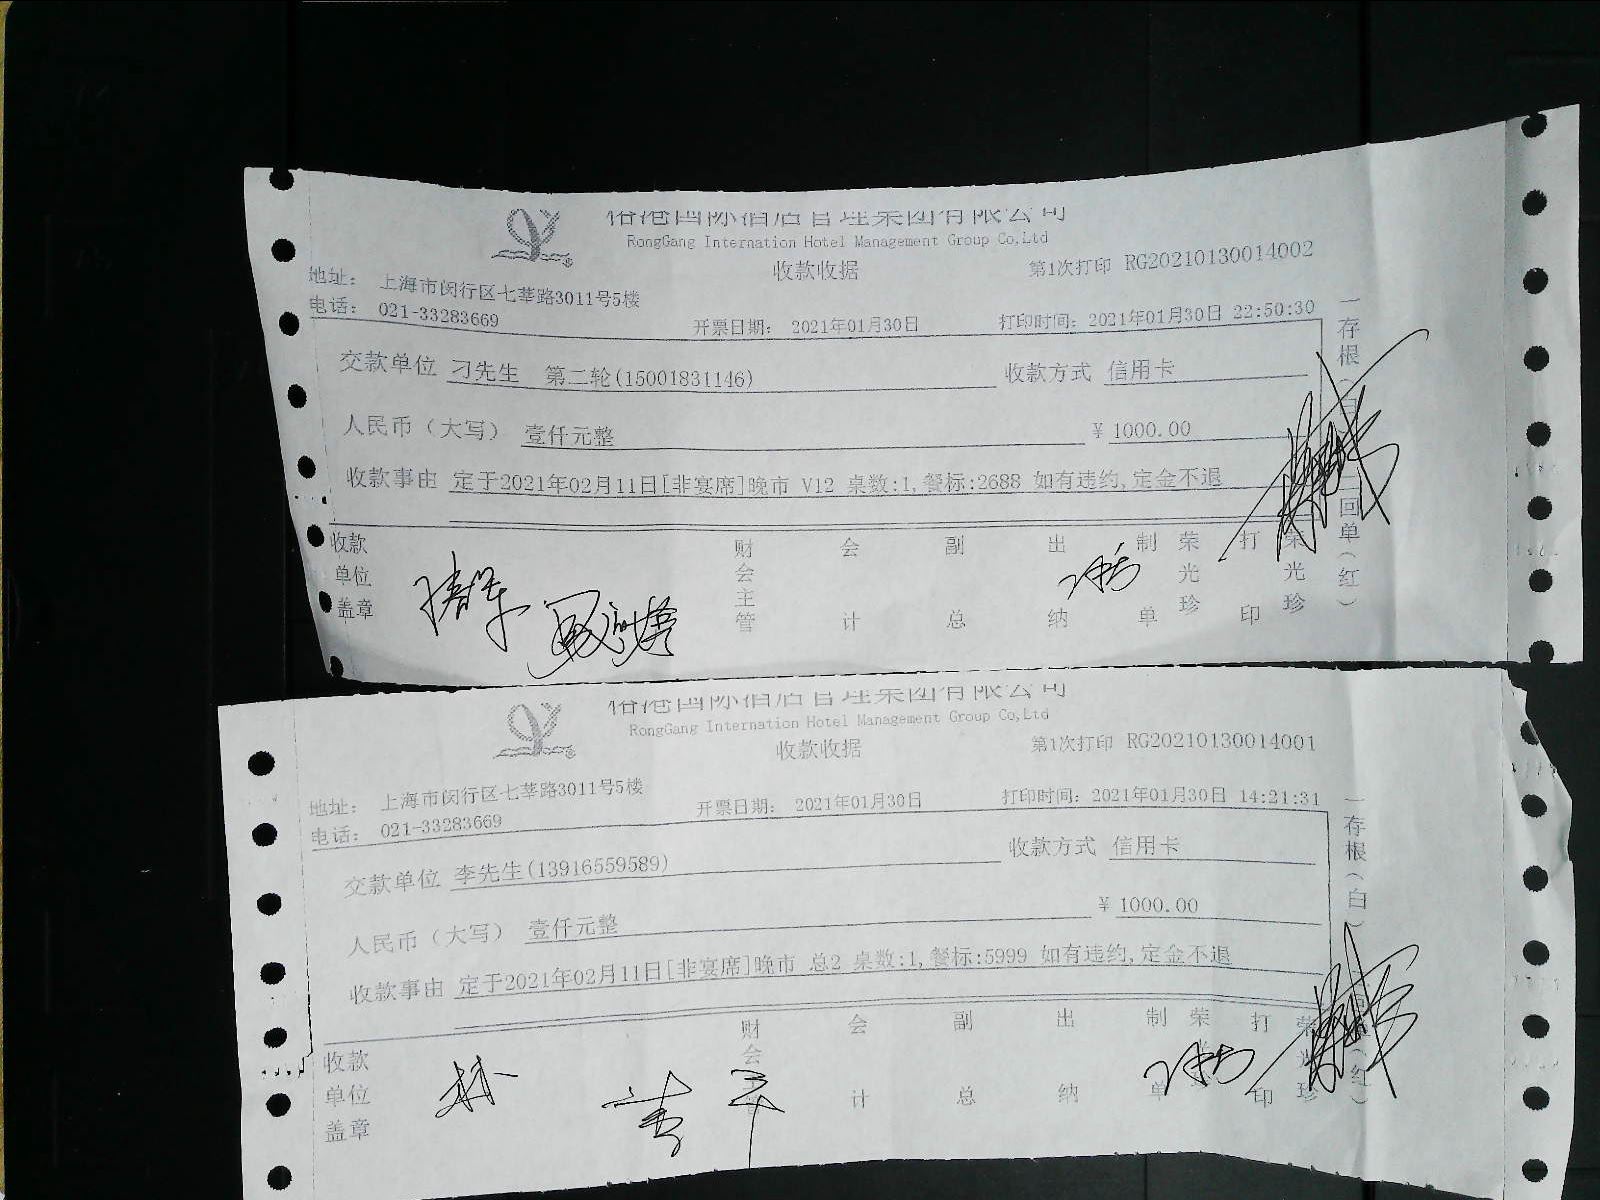 国际酒店管理集团有限公司
RongGang Internation Hotel Management Group Co,Ltd
收款收据
第1次打印 RG20210130014002
地址: 上海市闵行区七莘路3011号5楼
电话: 021-33283669
开票日期: 2021年01月30日
打印时间: 2021年01月30日 22:50:30
交款单位 刁先生 第二轮(15001831146)
收款方式 信用卡
人民币(大写) 壹仟元整
¥ 1000.00
收款事由 定于2021年02月11日[非宴席]晚市 V12 桌数:1,餐标:2688 如有违约,定金不退
收款单位盖章
财会主管
会计
副总
出纳
制单
荣光珍
打印
荣光珍
一存根(白)二回单(红)
国际酒店管理集团有限公司
RongGang Internation Hotel Management Group Co,Ltd
收款收据
第1次打印 RG20210130014001
地址: 上海市闵行区七莘路3011号5楼
电话: 021-33283669
开票日期: 2021年01月30日
打印时间: 2021年01月30日 14:21:31
交款单位 李先生(13916559589)
收款方式 信用卡
人民币(大写) 壹仟元整
¥ 1000.00
收款事由 定于2021年02月11日[非宴席]晚市 总2 桌数:1,餐标:5999 如有违约,定金不退
收款单位盖章
财会主管
会计
副总
出纳
制单
荣光珍
打印
荣光珍
一存根(白)
(红)